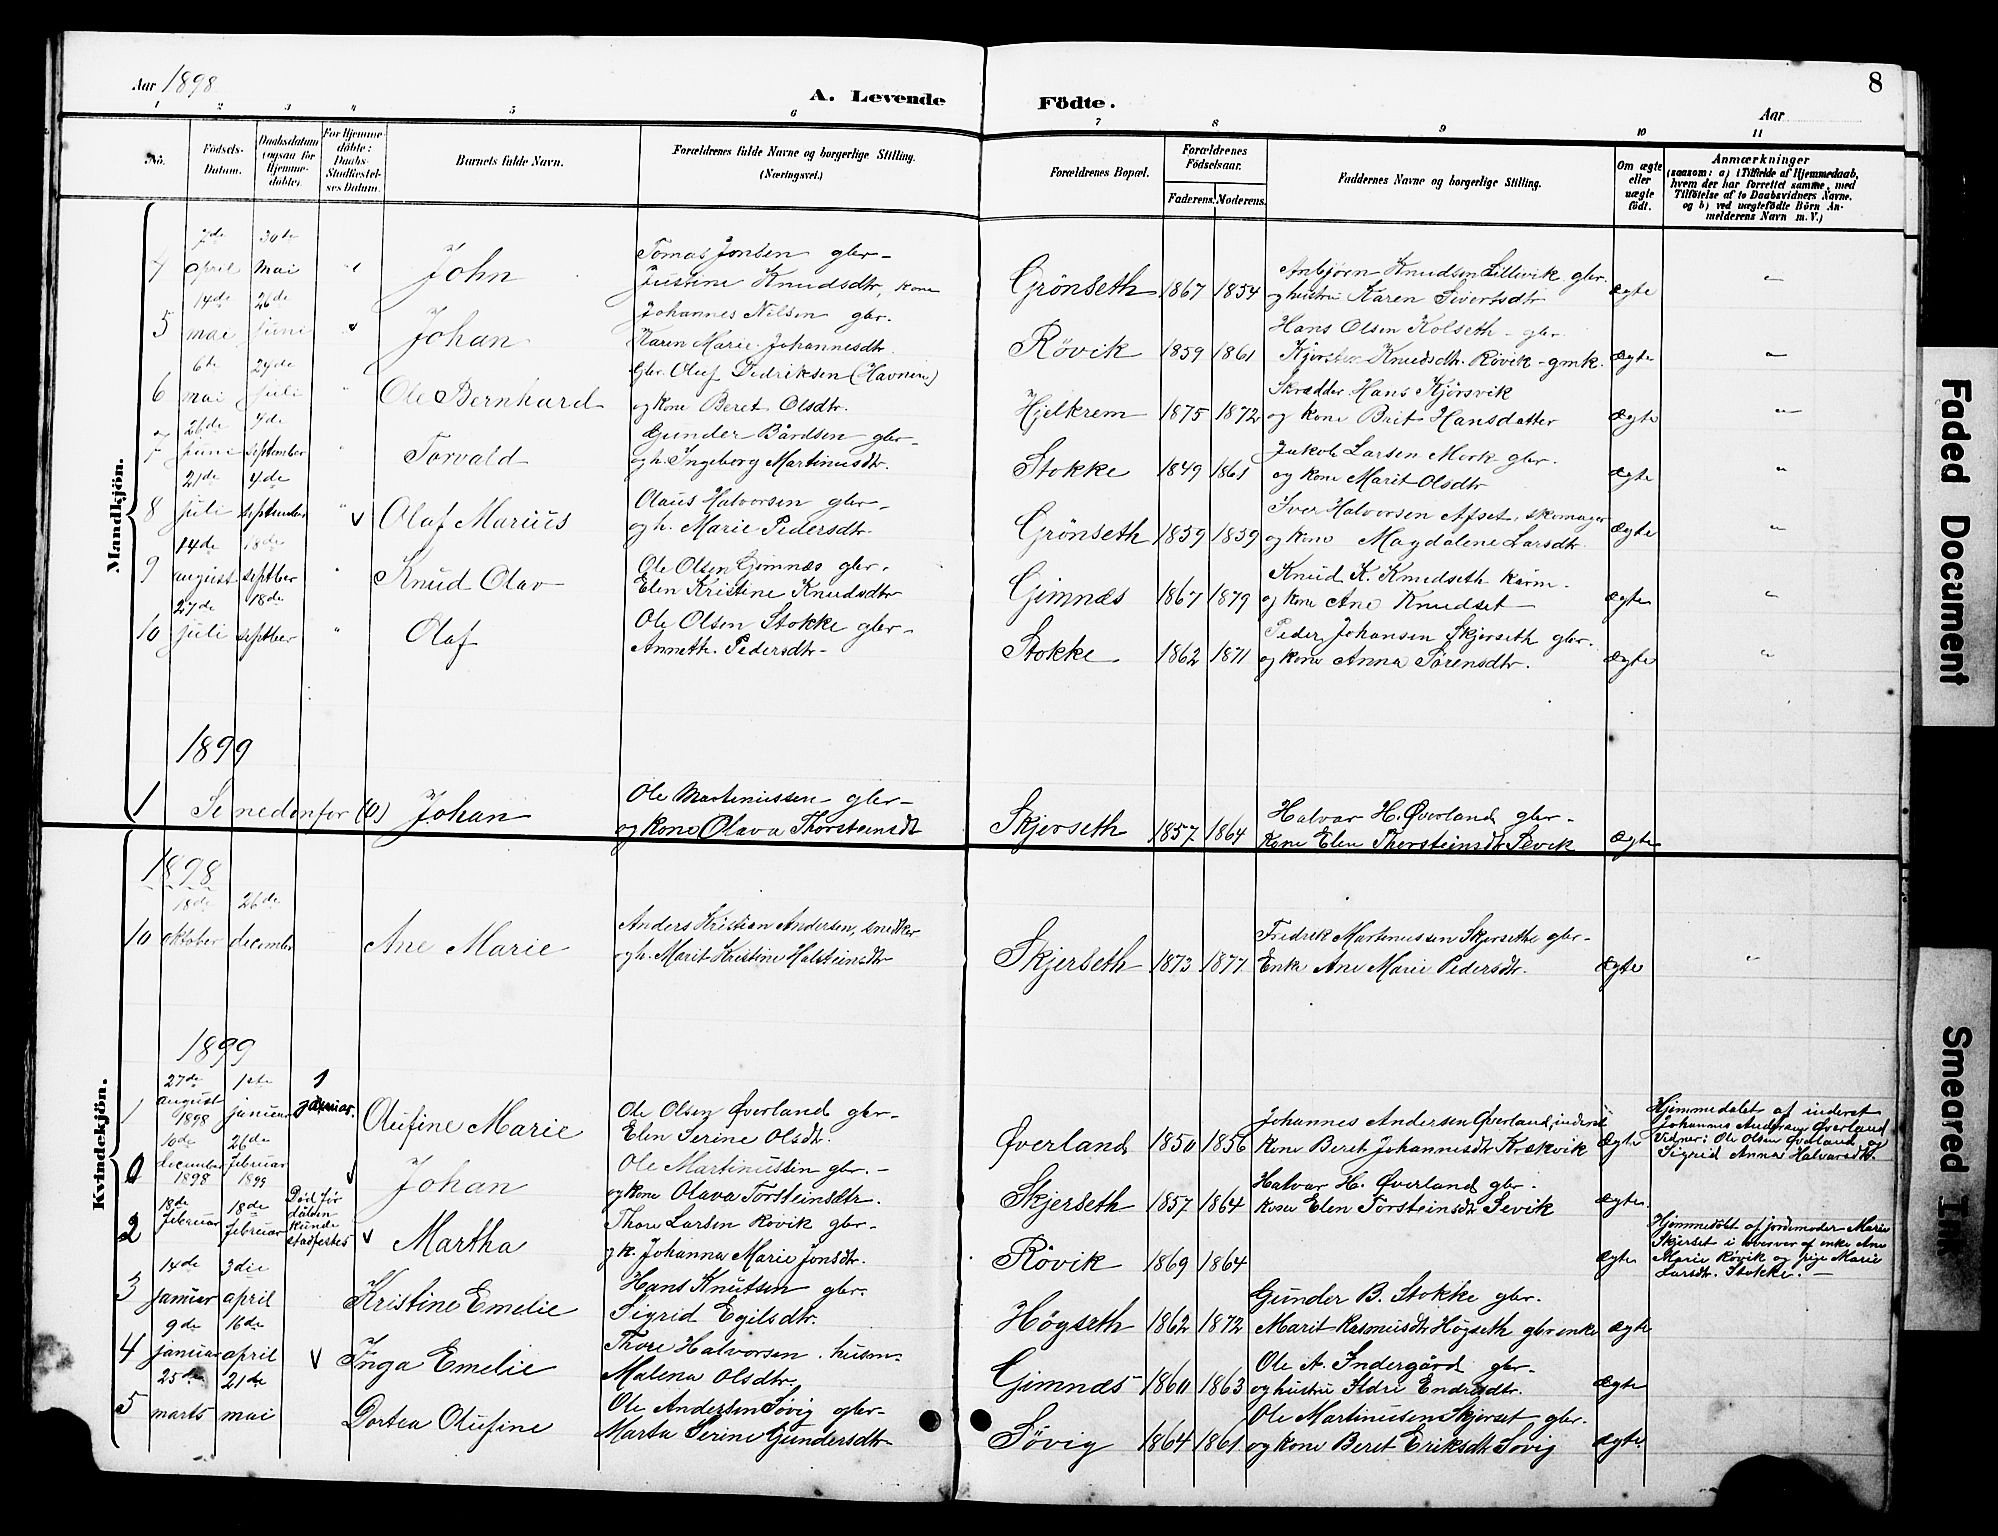 Aar 1898
A. Levende Födte.
Aar
8
1 2 3 4 5 6 7 8 9 10 11
No.
Födsels-Datum.
Daabsdatum (ogsaa for Hjemme-döbte).
For Hjemme-döbte: Daabs-Stadfæstel-ses Datum.
Barnets fulde Navn.
Forældrenes fulde Navne og borgerlige Stilling.
(Næringsvei.)
Forældrenes Bopæl.
Forældrenes Födselsaar.
Faderens. Moderens.
Faddernes Navne og borgerlige Stilling.
Om ægte eller uægte födt.
Anmærkninger
(saasom: a) i Tilfælde af Hjemmedaab,
hvem der har forrettet samme, med
Tilföielse af to Daabsvidners Navne,
og b) ved uægtefödte Börn An-
melderens Navn m. V.)
Mandkjön.
7de 30te Tomas Jonsen gbr-
4 april mai " John Justine Knudsdtr, kone Grönseth 1867 1854 Anbjørn Knudsen Lillevik gbr. og hustru Karen Sivertsdtr ægte "
14de 26de Johannes Nilsen gbr.
5 mai juni Johan Karen Marie Johannesdtr. Rövik 1859 1861 Hans Olsen Kolseth - gbr. Kjersten Knudsdtr. Rövik - gmk. ægte "
6te 24de Gbr. Oluf Didriksen (Havnen)
6 mai juli " Ole Bernhard og kone Beret Olsdtr. Hjelkrem 1875 1872 Skrædder Hans Kjörsvik og kone Brit Hansdatter ægte "
26de 4de Gunder Bårdsen gbr-
7 juni september " Torvald og h. Ingeborg Martinusdtr. Stokke 1849 1861 Jakob Larsen Mork gbr. og kone Marit Olsdtr ægte "
21de 4de Olaus Halvorsen gbr-
8 juli september " v Olaf Marius og h. Marie Pedersdtr. Grönseth 1859 1859 Iver Halvorsen Afset, skomager og kone Magdalene Larsdtr. ægte "
14de 18de Ole Olsen Gimnæs gbr.
9 august septber " Knud Olav Elen Kristine Knudsdtr Gimnæs 1867 1879 Knud K. Knudseth og kone Ane Knudset ægte "
27de 18de Ole Olsen Stokke gbr-
10 juli septber " Olaf Anneth. Pedersdtr- Stokke 1862 1871 Peder Johansen Skjerseth gbr. og kone Anna Sörensdtr. ægte "
1899
1 Se nedenfor (0) Johan Ole Martinussen gbr- og kone Olava Thorsteinsdt Skjerseth 1857 1864 Halvar H. Øverland gbr- Kone Elen Thorsteinsdtr Sevik ægte
Kvindekjön.
1898
18de 26de Anders Kristian Andersen, snedker
10 oktober decembr Ane Marie og h. Marit Kristine Halsteinsdtr Skjerseth 1873 1877 Fredrik Martinussen Skjersethe gbr- Enke Ane Marie Pedersdtr. ægte "
1899
27de 1ste 1
1 august 1898 januar januar. Olufine Marie Ole Olsen Øverland gbr- Elen Serine Olsdtr. Øverland 1850 1856 Johannes Andersen Øverland, inderst kone Beret Johannesdtr Kraskvik ægte Hjemmedøbt af inderst
Johannes Andersen Øverland
Vidner: Ole Olsen Øverland og
Sigrid Anna Halvarsdtr.
10de 26de
0 december 1898 februar 1899 v Johan Ole Martinussen gbr. - og kone Olava Torsteinsdtr. Skjerseth 1857 1864 Halvar H. Øverland gbr. Kone Elen Torsteinsdtr Sevik ægte.
18de 18de
2 februar februar Död før dåben kunde stadfestes v Martha Thore Larsen Rövik gbr- og k. Johanna Marie Jonsdtr. Rövik 1869 1864 ægte Hjemmedöbt af jordmoder Marie
Skjerset i overvær af enke Ane
Marie Røvik og pige Marie
Larsdtr. Stokke. -
14de 3die Hans Knutsen gbr.
3 januar april Kristine Emelie Sigrid Egilsdtr. Högseth 1862 1872 Gunder B. Stokke gbr. Marit Rasmusdtr Högseth gbr.enke ægte
9de 16de Thore Halvorsen. husm-
4 januar april v Inga Emelie Malena Olsdtr. Gimnæs 1860 1863 Ole A. Indergård gbr- og hustru Ildri Endresdtr. ægte
25de 21de Ole Andersen Søvig gbr-
5 marts mai Dortea Olufine Marta Serine Gundersdtr Søvig 1864 1861 Ole Martinusen Skjerset gbr. og kone Beret Eriksdtr Søvig ægte
Faded Document
Smeared Ink